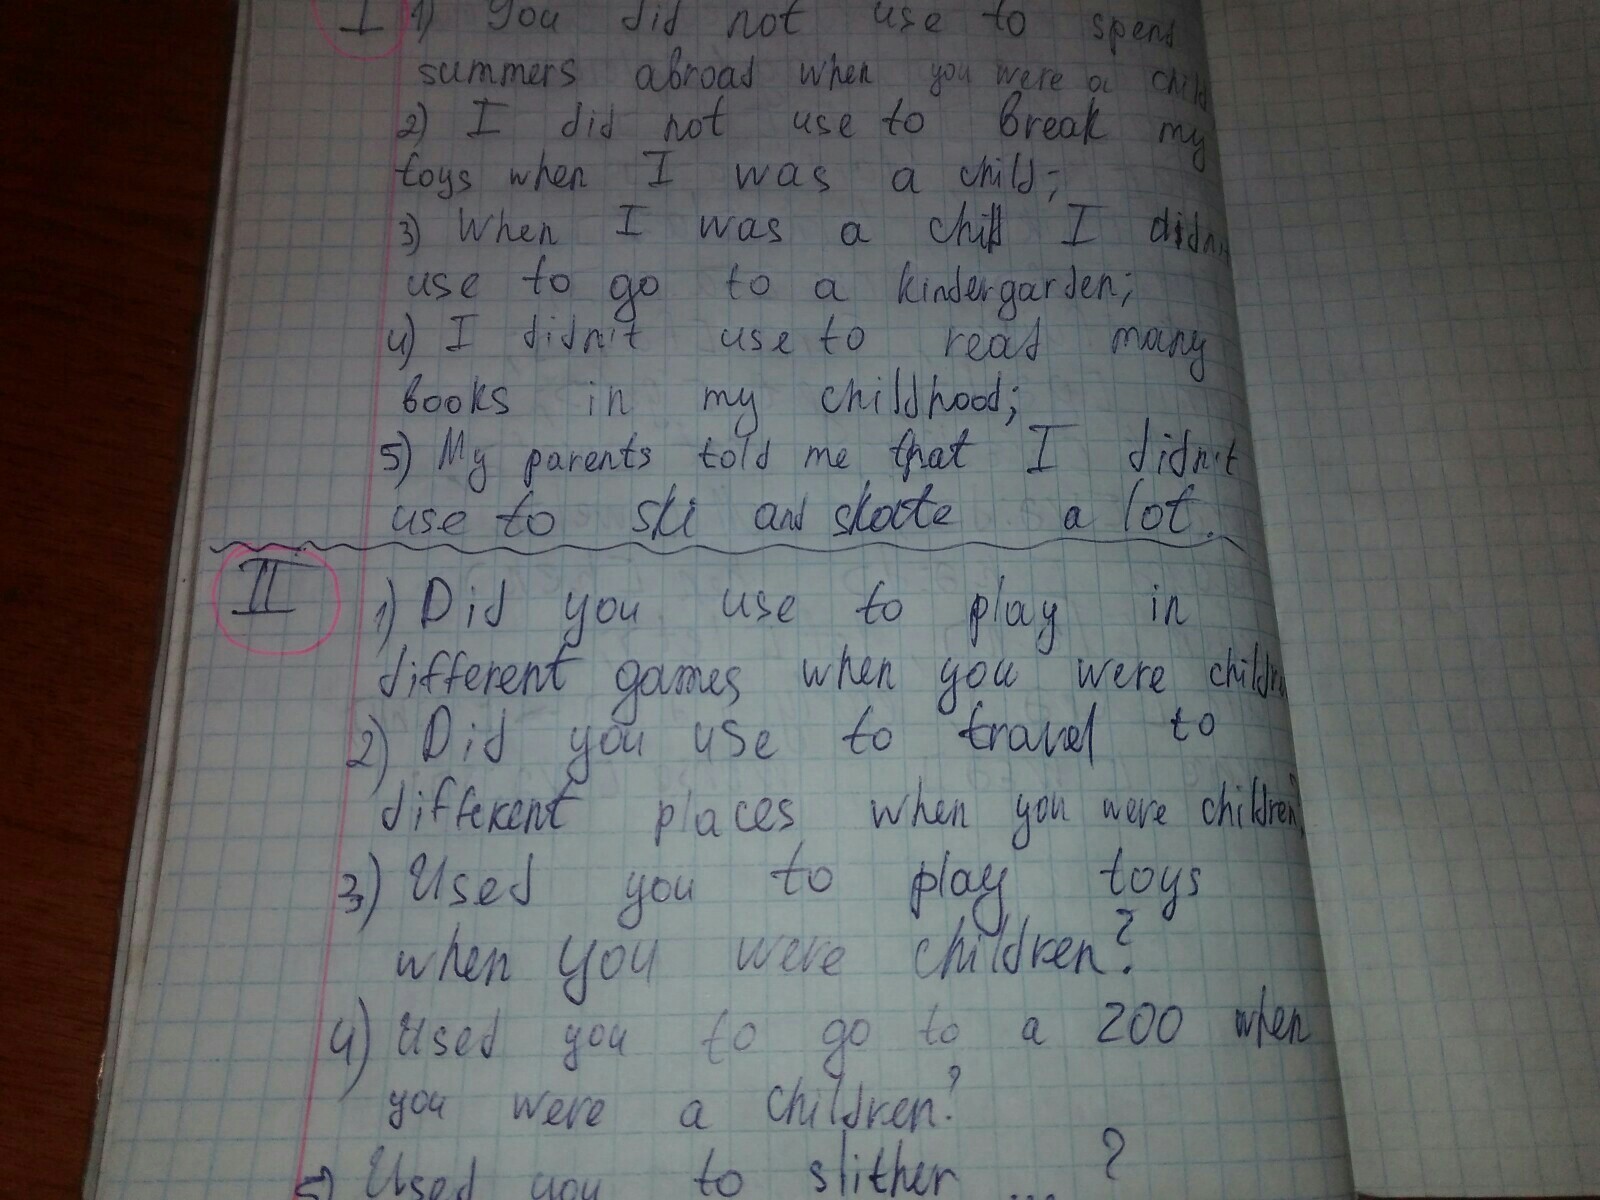 I 1) You did not use to spend
summers abroad when you were a child
2) I did not use to break my
toys when I was a child;
3) When I was a child I didn't
use to go to a kindergarden;
4) I didn't use to read many
books in my childhood;
5) My parents told me that I didn't
use to ski and skate a lot.
II 1) Did you use to play in
different games when you were
2) Did you use to travel to
different places when you were children?
3) Used you to play toys
when you were children?
4) Used you to go to a zoo when
you were a children?
5) Used you to slither ... ?